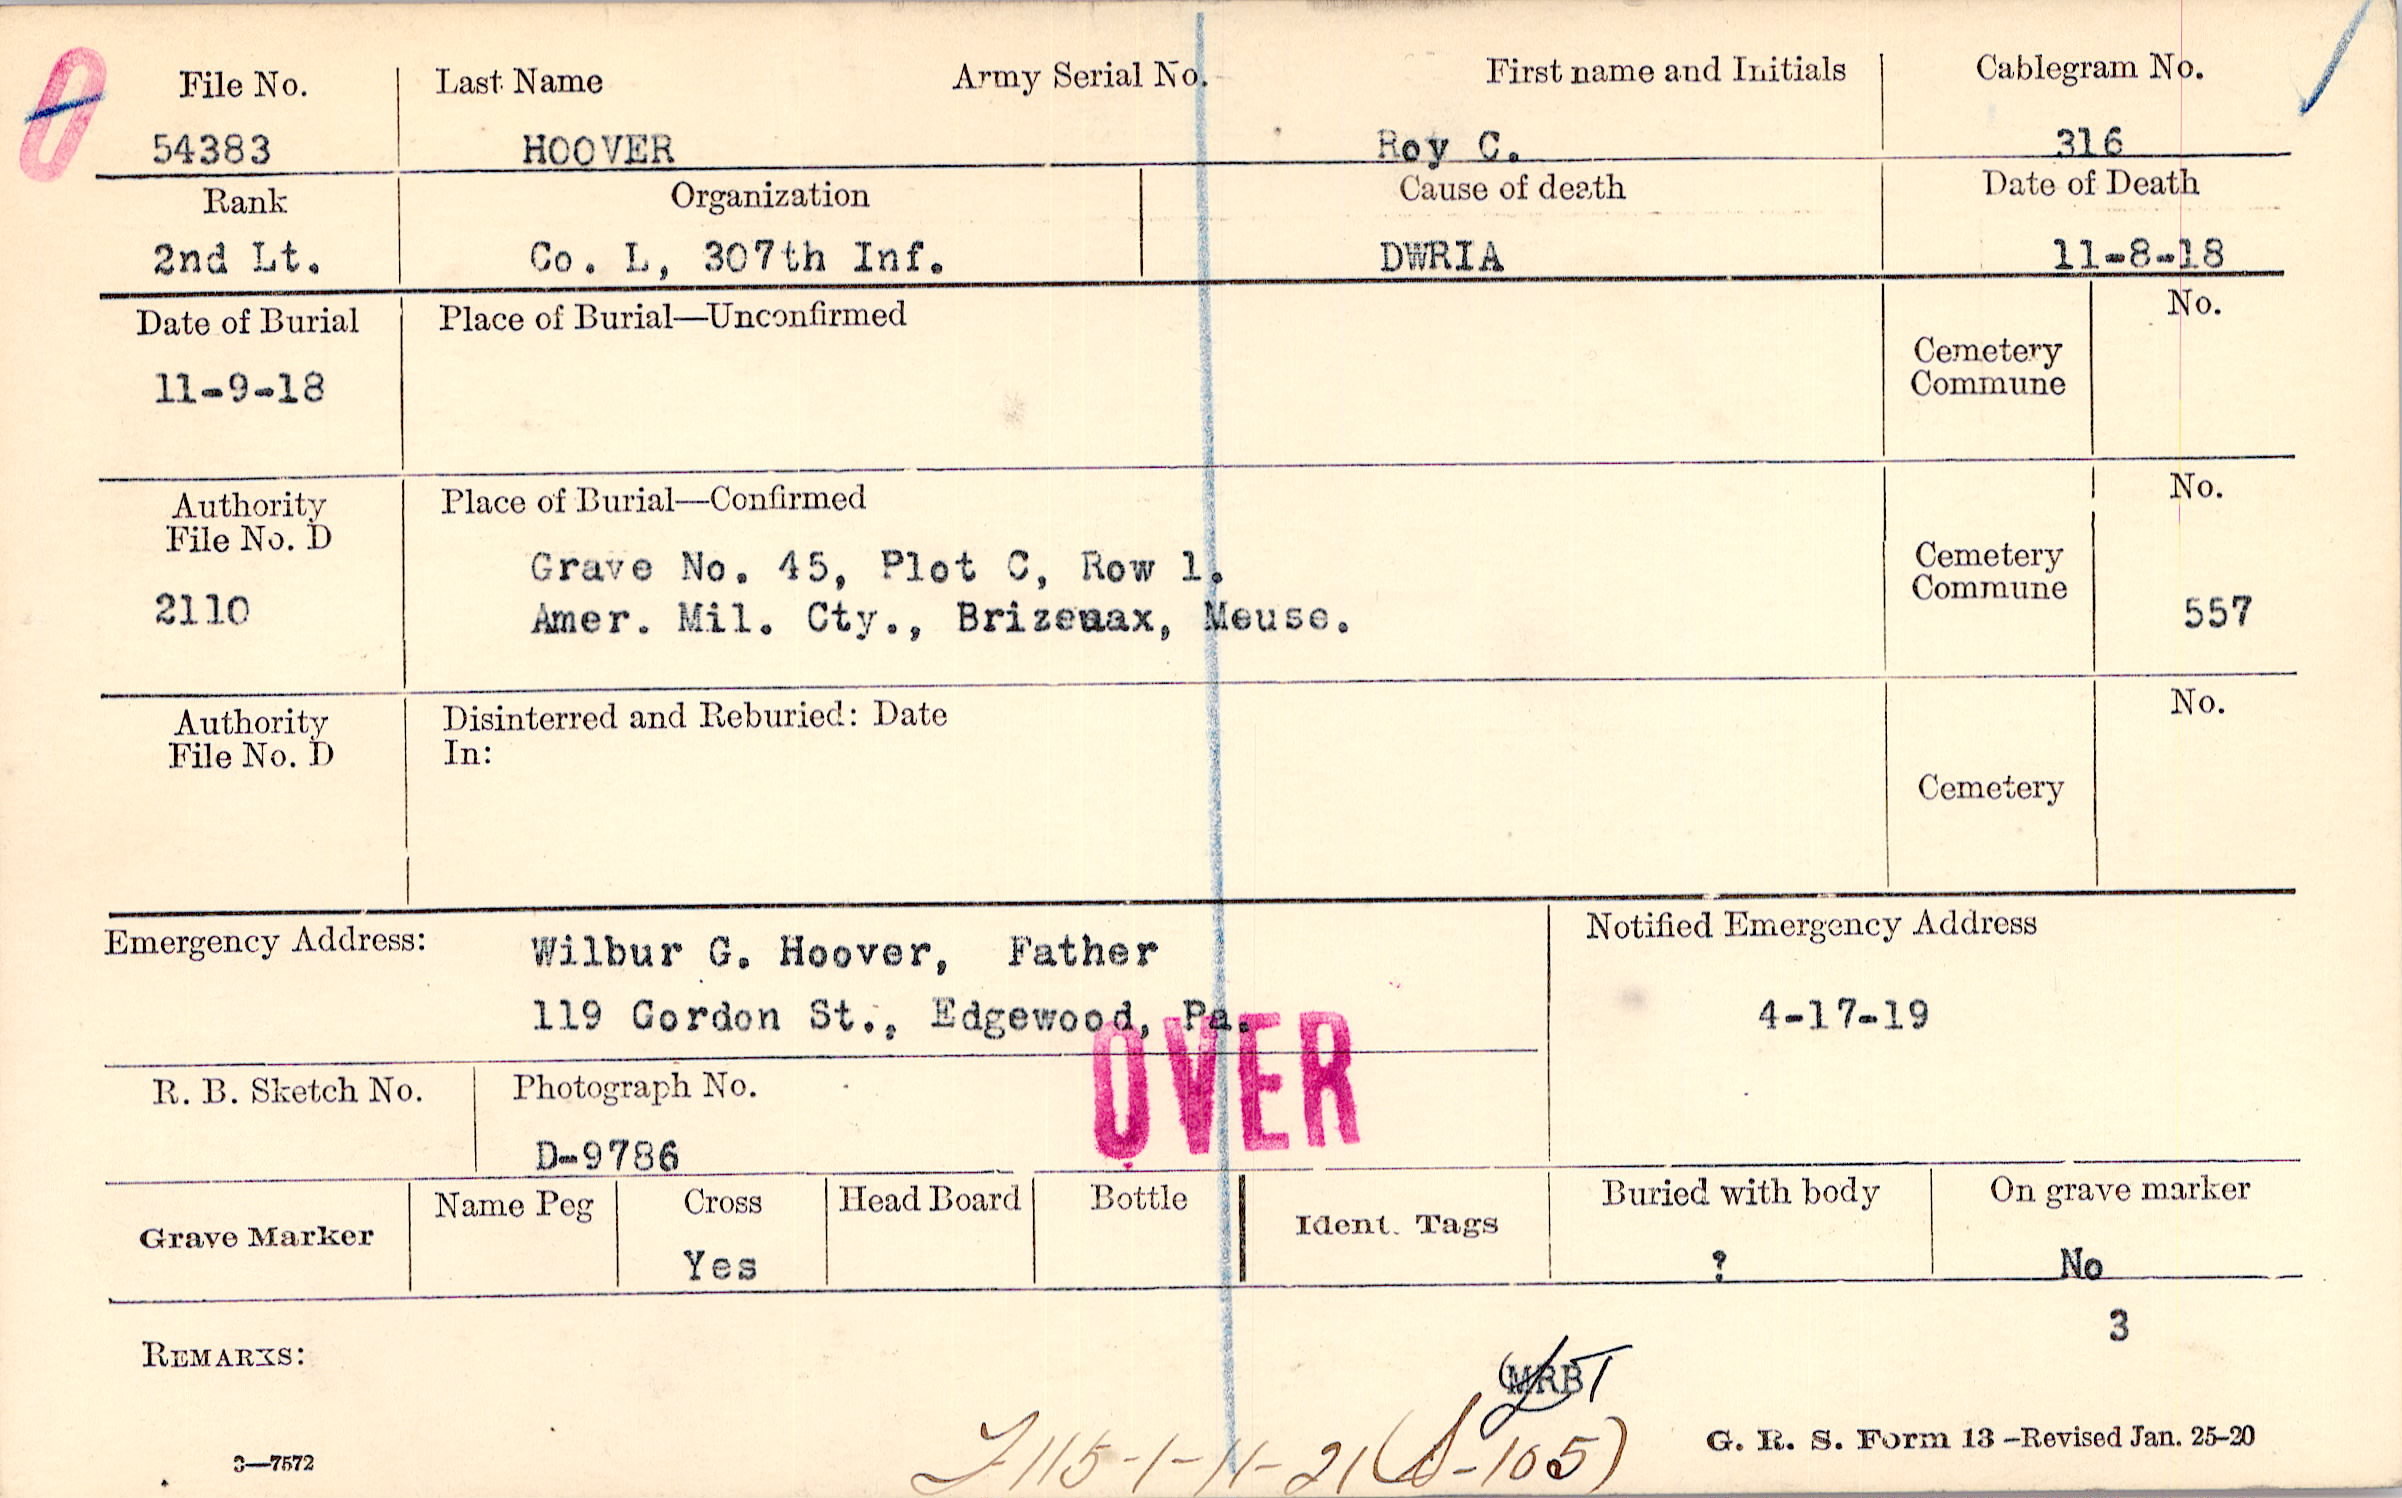 File No. Last Name Army Serial No. First name and Initials Cablegram No.
54383 HOOVER Roy C. 316
Rank Organization Cause of death Date of Death
2nd Lt. Co. L, 307th Inf. DWRIA 11-8-18
Date of Burial Place of Burial—Unconfirmed No.
11-9-18 Cemetery
Commune
Authority Place of Burial—Confirmed No.
File No. D
Grave No. 45, Plot C, Row 1. Cemetery
Commune
2110 Amer. Mil. Cty., Brizeaux, Meuse. 557
Authority Disinterred and Reburied: Date No.
File No. D In:
Cemetery
Emergency Address: Wilbur G. Hoover, Father Notified Emergency Address
119 Gordon St., Edgewood, Pa. 4-17-19
OVER
R. B. Sketch No. Photograph No.
D-9786
Grave Marker Name Peg Cross Head Board Bottle Ident. Tags Buried with body On grave marker
Yes ? No
3
REMARKS:
MRB
115-1-11-21 (S-105)
3—7572 G. R. S. Form 13—Revised Jan. 25-20